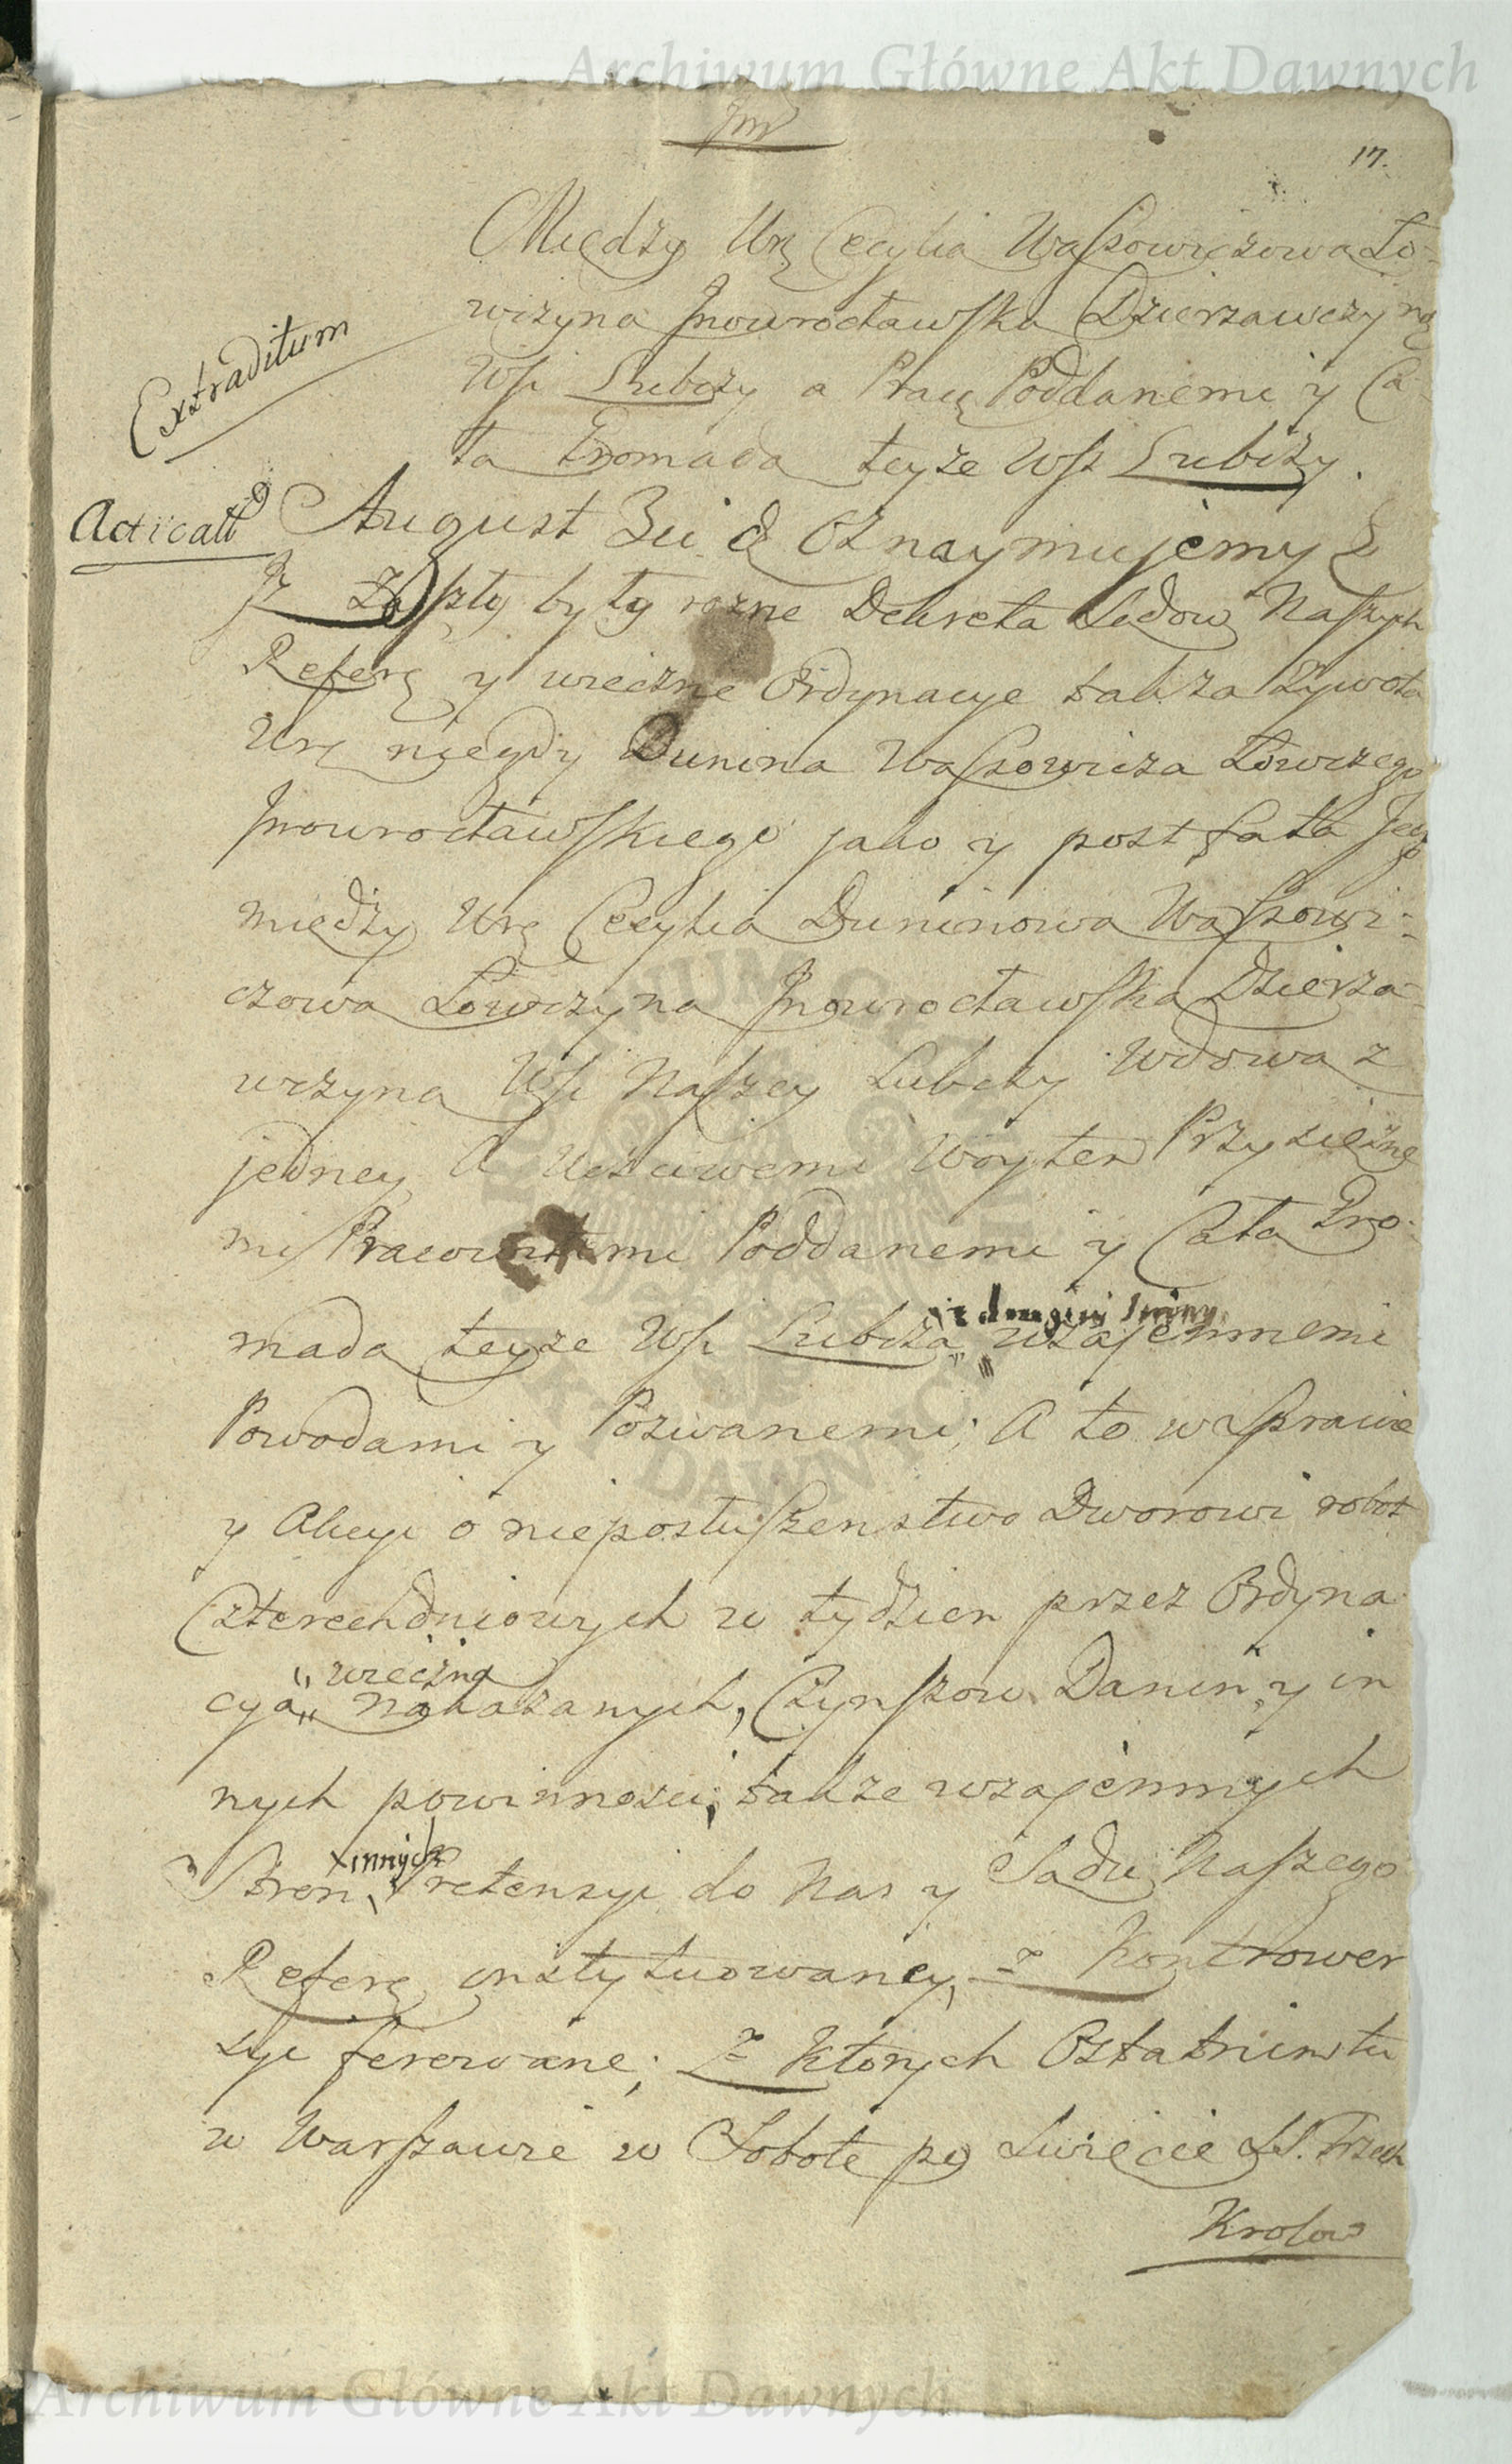 Archiwum Główne Akt Dawnych
17.
Między Urę Cecylia Waſsowiczowa Ło-
wczyna Jnowrocławſka Dzierzawczyną
Wſi Lubczy a Pracę Poddanemi y Ca-
ła Gromada teyże Wſi Lubczy.
Extraditum
Acticatt
August 3ci & Oznaymujemy &
Jż Zaſzły były rozne Dekreta Sędow Naſzych
Referę y wieczne Ordynacye tak za Zywota
Urę niegdy Dunina Waſsowicza Łowczego
Jnowrocławſkiego jako y post fata Jego
między Urę Cecylia Duninowa Waſsowi-
czowa Łowczyna Jnowrocławſka Dzierza-
wczyna Wſi Naſzey Lubczy Wdowa z
jedney A Uczciwemi Woytem Przysiężne
mi Pracowitemi Poddanemi y Cała Gro-
mada teyże Wſi Lubcza „z drugiey strony„ wzajemnemi
Powodami y Pozwanemi; A to w Sprawie
y Akcyi o niepoſtuſzenstwo Dworowi robot
Czterechdniowych w tydzien przez Ordyna
cya „wieczną„ nakazanych, Czynſzow Danin, y in
nych powinnosci, takze wzajemnych
Stron, innych Pretensyi do Nas y Sadu Naſzego
Referę instytuowaney, z Kontrower
syi ferowane; Z Ktorych Ostatnim tu
w Warſzawie w Sobotę po Swięcie SS. Trzech
Krolow
Archiwum Główne Akt Dawnych